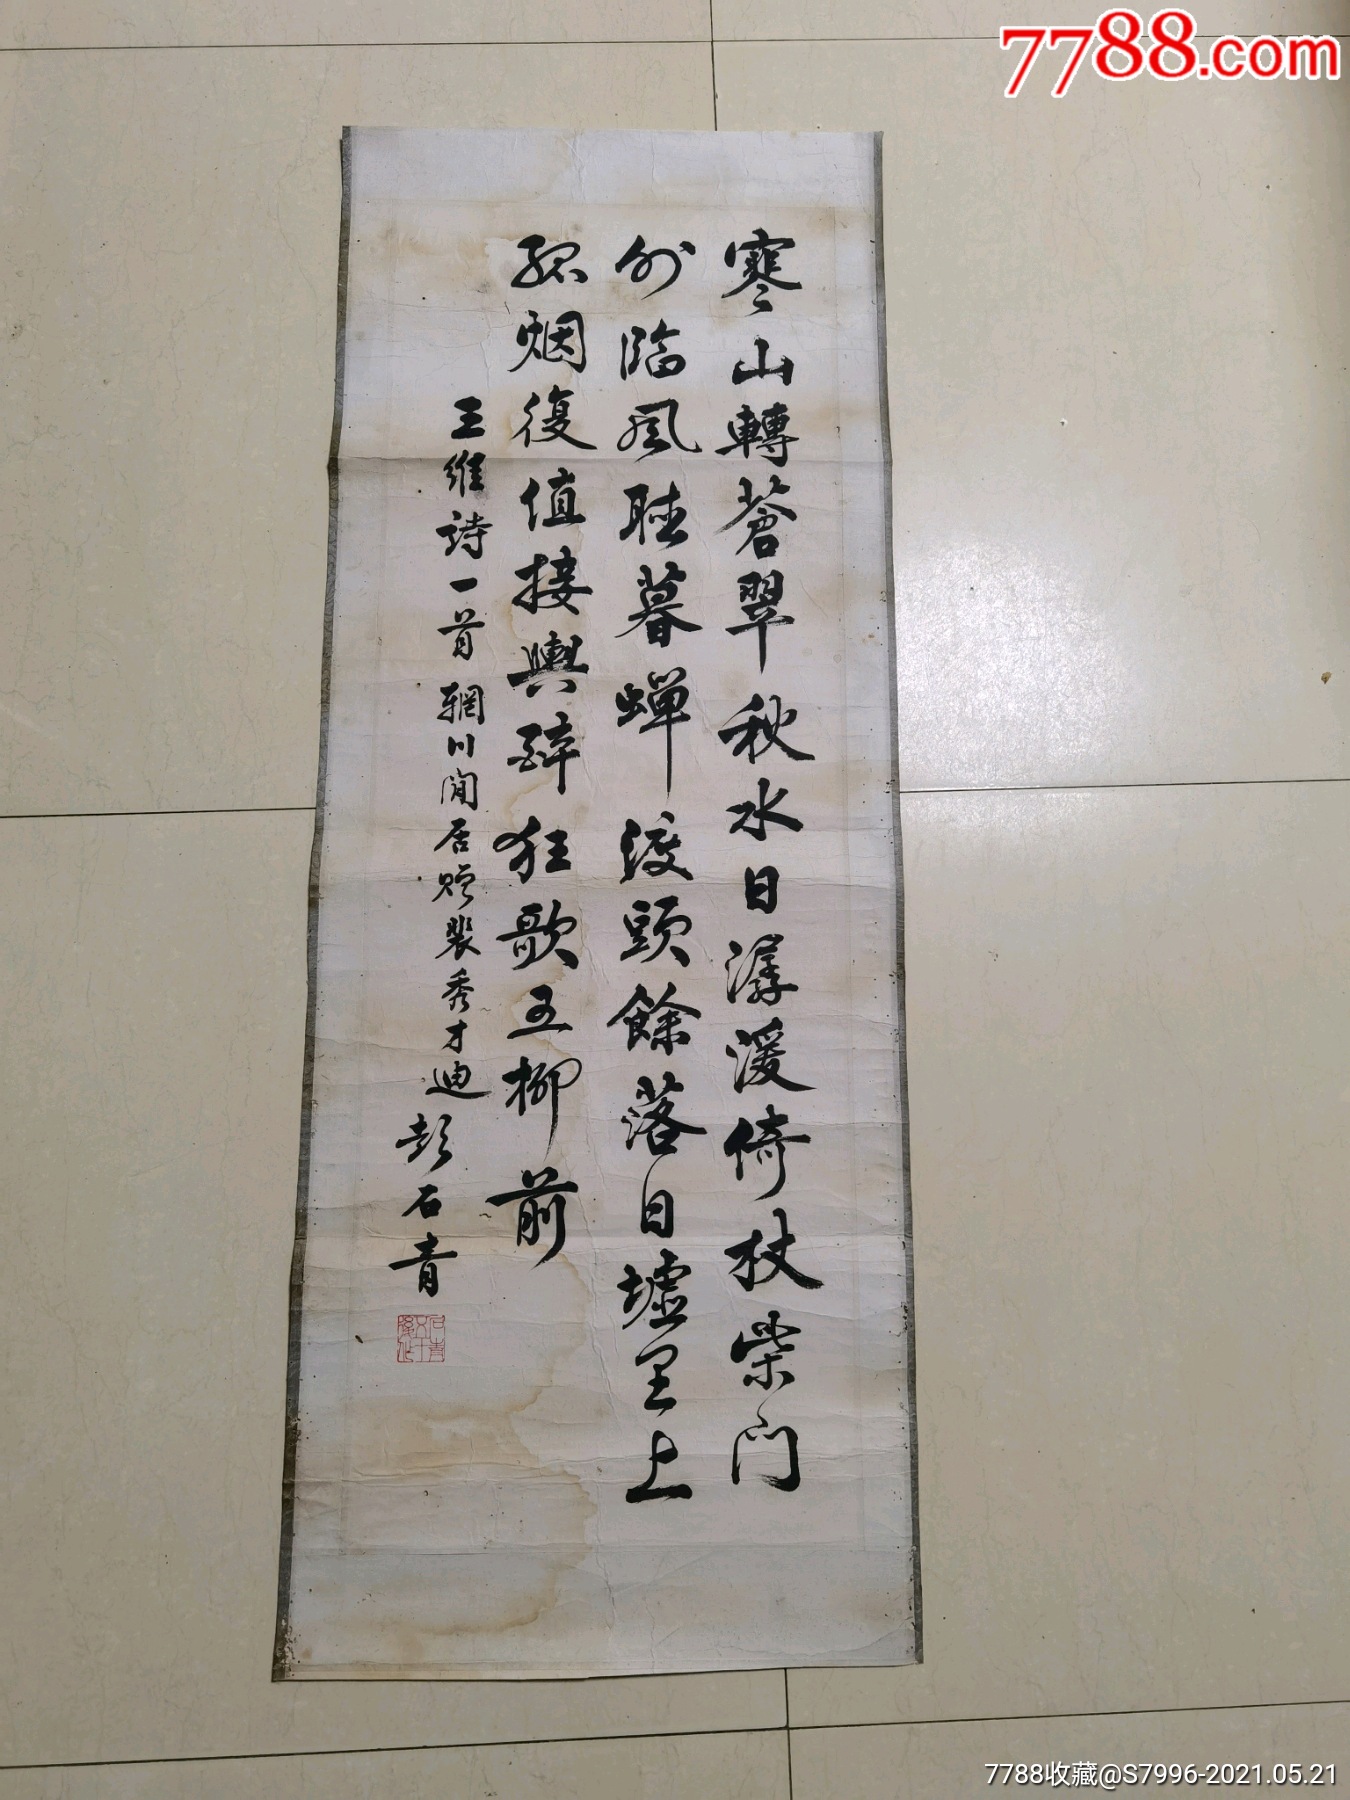 7788.com
寒山轉蒼翠秋水日潺湲倚杖柴門
外臨風聽暮蟬渡頭餘落日墟里上
孤烟復值接輿醉狂歌五柳前
王維詩一首 輞川閒居贈裴秀才迪
彭石青
7788收藏@S7996-2021.05.21